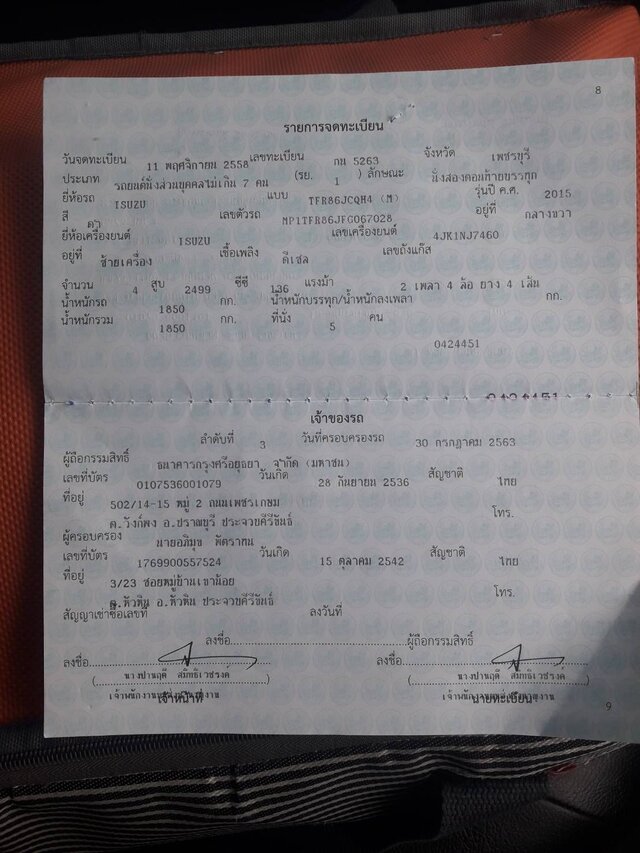 8
รายการจดทะเบียน
วันจดทะเบียน 11 พฤศจิกายน 2558 เลขทะเบียน กน 5263 จังหวัด เพชรบุรี
ประเภท รถยนต์นั่งส่วนบุคคลไม่เกิน 7 คน (รย. 1 ) ลักษณะ นั่งสองตอนท้ายบรรทุก
ยี่ห้อรถ ISUZU แบบ TFR86JCQH4 (M) รุ่นปี ค.ศ. 2015
สี ดำ เลขตัวรถ MP1TFR86JFG067028 อยู่ที่ กลางขวา
ยี่ห้อเครื่องยนต์ ISUZU เลขเครื่องยนต์ 4JK1NJ7460
อยู่ที่ ซ้ายเครื่อง เชื้อเพลิง ดีเซล เลขถังแก๊ส
จำนวน 4 สูบ 2499 ซีซี 136 แรงม้า 2 เพลา 4 ล้อ ยาง 4 เส้น
น้ำหนักรถ 1850 กก. น้ำหนักบรรทุก/น้ำหนักลงเพลา กก.
น้ำหนักรวม 1850 กก. ที่นั่ง 5 คน
0424451
เจ้าของรถ
ลำดับที่ 3 วันที่ครอบครองรถ 30 กรกฎาคม 2563
ผู้ถือกรรมสิทธิ์ ธนาคารกรุงศรีอยุธยา จำกัด (มหาชน)
เลขที่บัตร 0107536001079 วันเกิด 28 กันยายน 2536 สัญชาติ ไทย
ที่อยู่ 502/14-15 หมู่ 2 ถนนเพชรเกษม โทร.
ต.วังก์พง อ.ปราณบุรี ประจวบคีรีขันธ์
ผู้ครอบครอง นายอภิมุข พัดราหน
เลขที่บัตร 1769900557524 วันเกิด 15 ตุลาคม 2542 สัญชาติ ไทย
ที่อยู่ 3/23 ซอยหมู่บ้านเขาน้อย โทร.
ต.หัวหิน อ.หัวหิน ประจวบคีรีขันธ์
สัญญาเช่าซื้อเลขที่ ลงวันที่
ลงชื่อ ผู้ถือกรรมสิทธิ์
ลงชื่อ ลงชื่อ
เจ้าหน้าที่ นายทะเบียน
9